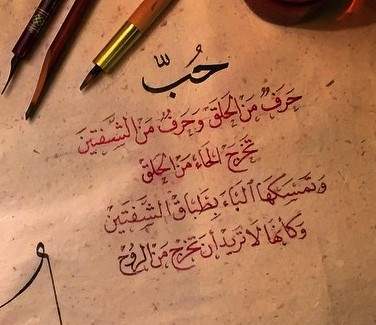 حُبّ
حَرفٌ مِنَ الحَلقِ وَحَرفٌ مِنَ الشَّفَتَين
تَخرج الحَاءَ مِنَ الحَلق
وَتَمسكهَا البَاءَ بِطبَاق الشَّفَتَين
وَكَأنهَا لَا تَريد أن تَخرج مِن الرُّوح